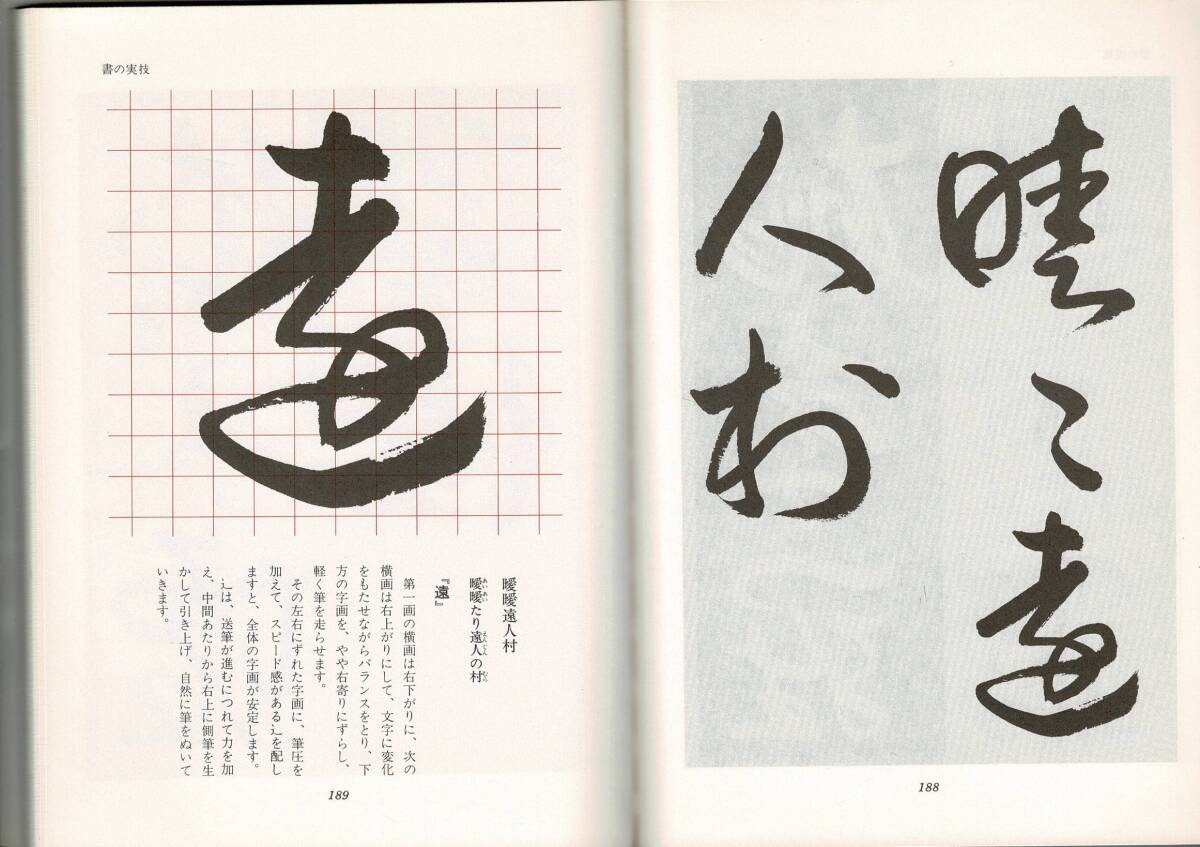 曖〻遠
人村
188
書の実技
遠
曖曖遠人村
曖曖たり遠人の村
あいあい
えんじん
むら
『遠』
第一画の横画は右下がりに、次の
横画は右上がりにして、文字に変化
をもたせながらバランスをとり、下
方の字画を、やや右寄りにずらし、
軽く筆を走らせます。
その左右にずれた字画に、筆圧を
加えて、スピード感がある辶を配し
ますと、全体の字画が安定します。
辶は、送筆が進むにつれて力を加
え、中間あたりから右上に側筆を生
かして引き上げ、自然に筆をぬいて
いきます。
189